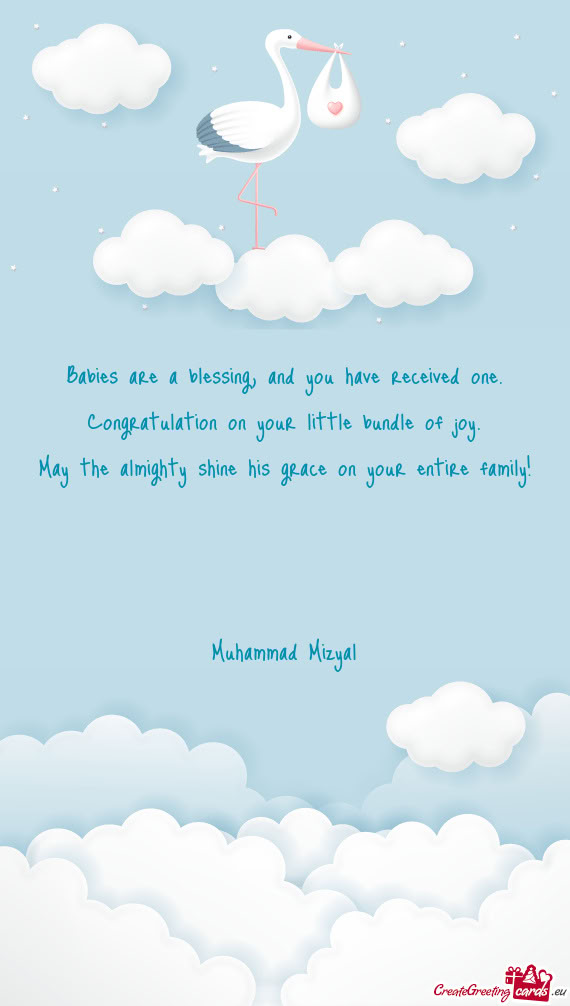 Babies are a blessing, and you have received one.
Congratulation on your little bundle of joy.
May the almighty shine his grace on your entire family!
Muhammad Mizyal
CreateGreeting cards .eu